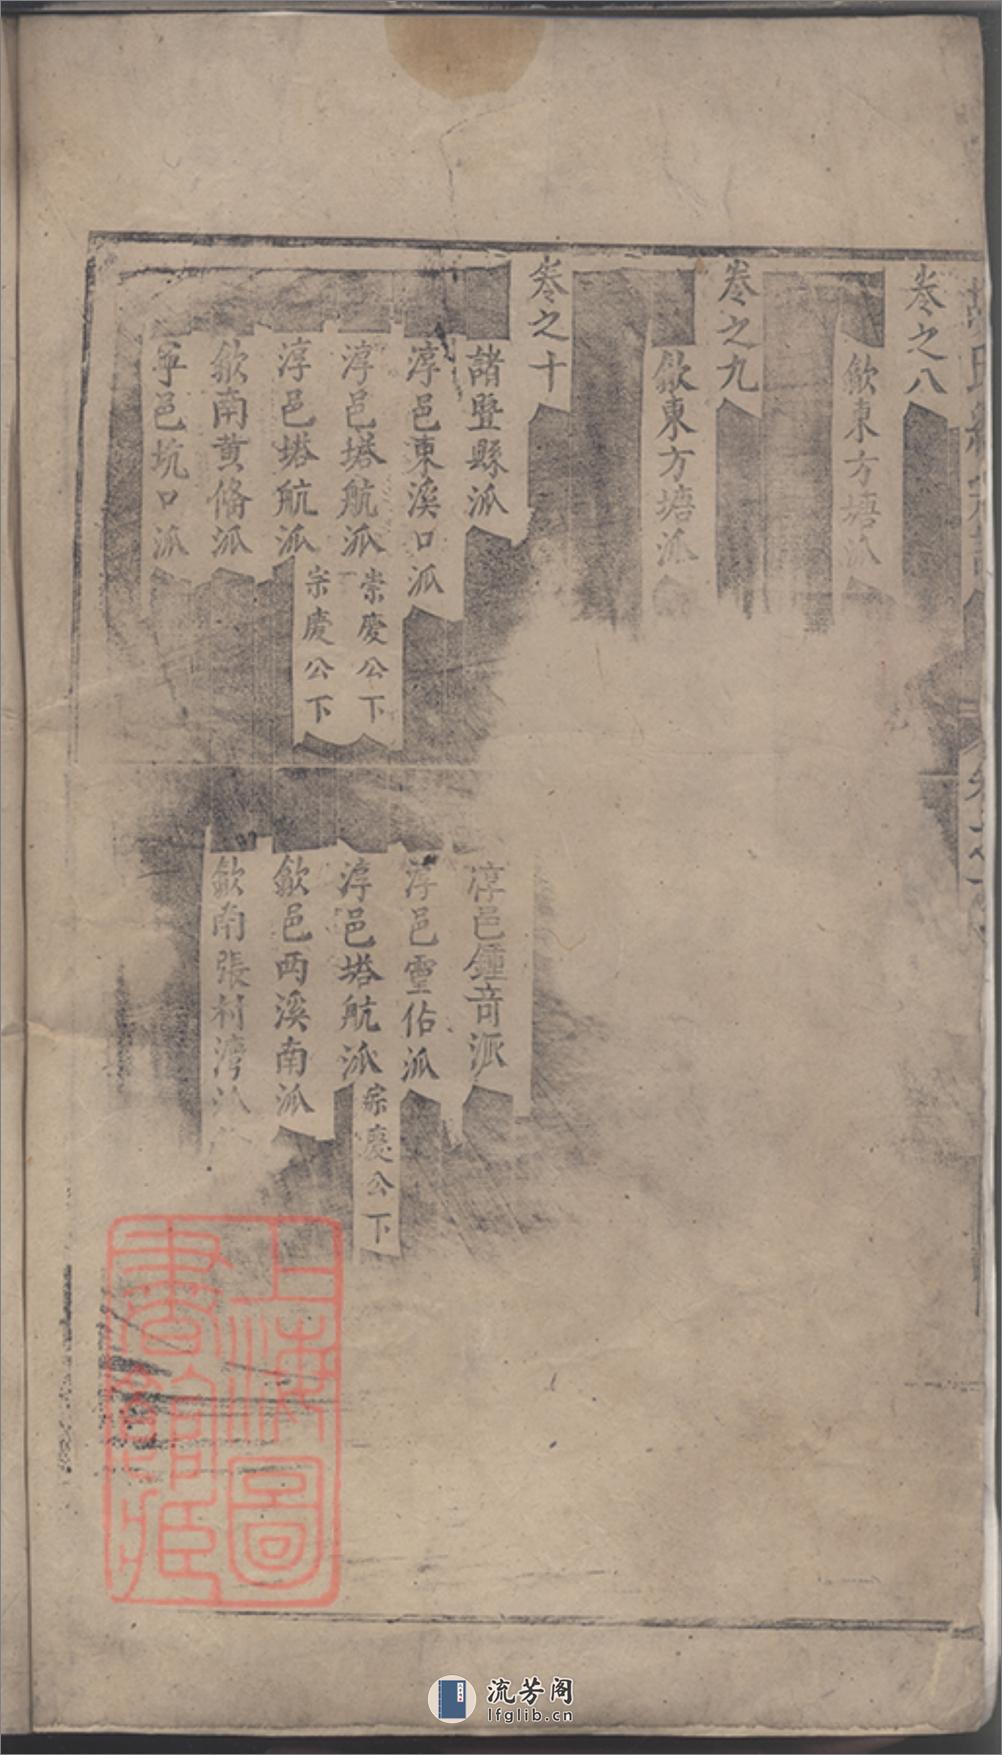 卷之八
歙東方塘泒
卷之九
歙東方塘泒
卷之十
諸暨縣泒
淳邑東溪口泒
淳邑塔航泒 崇慶公下
淳邑塔航泒 宗慶公下
歙南黄俻泒
寧邑坑口泒
淳邑鍾竒派
淳邑靈佑泒
淳邑塔航派 宗慶公下
歙邑西溪南泒
歙南張村灣泒
上海圖
書館藏
流芳阁
lfglib.cn